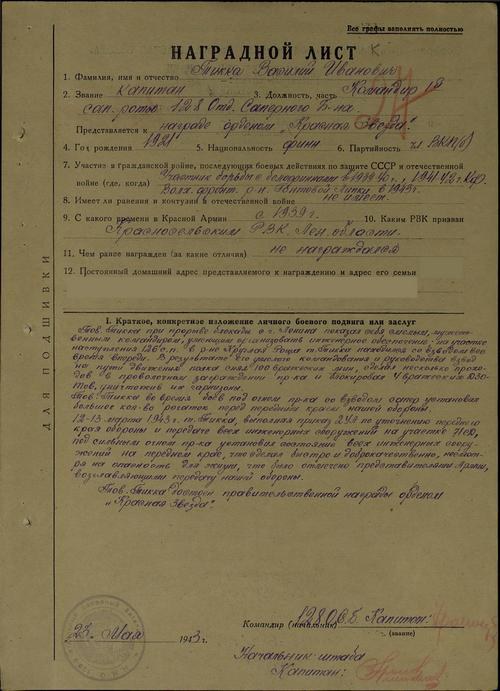 Все графы заполнять полностью
НАГРАДНОЙ ЛИСТ
1. Фамилия, имя и отчество Тикка Василий Иванович
2. Звание капитан 3. Должность, часть Командир 1й
сап. роты 128 Отд. Саперного Б-на.
Представляется к награде орденом „Красная Звезда".
4. Год рождения 1921 5. Национальность финн 6. Партийность чл ВКП(б)
7. Участие в гражданской войне, последующих боевых действиях по защите СССР и отечественной
войне (где, когда) Участник борьбы с белофиннами в 1939-40 г., 1941-42 г. Кар.
Волх. фронт. р-н. Гонтовой Липки в 1943 г.
8. Имеет ли ранения и контузии в отечественной войне не имеет.
9. С какого времени в Красной Армии с 1939 г. 10. Каким РВК призван
Красносельским РВК. Лен. области.
11. Чем ранее награжден (за какие отличия) не награждался
12. Постоянный домашний адрес представляемого к награждению и адрес его семьи
ДЛЯ ПОДШИВКИ
I. Краткое, конкретное изложение личного боевого подвига или заслуг
Тов. Тикка при прорыве блокады с г. Ленина показал себя смелым, мужест-
венным командиром, умеющим организовать инженерное обеспечение на участке
наступления 128 с.п. в р-не Круглой Рощи т. Тикка находился со взводом все
время впереди. В результате его умелого командования и руководства взвод
на пути движения полка снял 100 вражеских мин, сделал несколько прохо-
дов в проволочном заграждении пр-ка и блокировал 4 вражеских ДЗО-
Тов, уничтожив их гарнизоны.
Тов. Тикка во время боев под огнем пр-ка со взводом сапер установил
большое кол-во рогаток перед передним краем нашей обороны.
12-13 марта 1943 г. т. Тикка, выполняя приказ 2УА по уточнению переднего
края обороны и передаче всех инженерных сооружений на участке
под сильным огнем пр-ка установил состояние всех инженерных соору-
жений на переднем крае, что сделал быстро и доброкачественно, несмот-
ря на опасность для жизни, что было отмечено представителями Армии,
возглавляющими передачу нашей обороны.
Тов. Тикка достоин правительственной награды орденом
„Красная Звезда".
Командир (начальник) 128 О.С.Б. Капитан:
(звание)
23. Мая 1943 г.
Начальник штаба
Капитан: